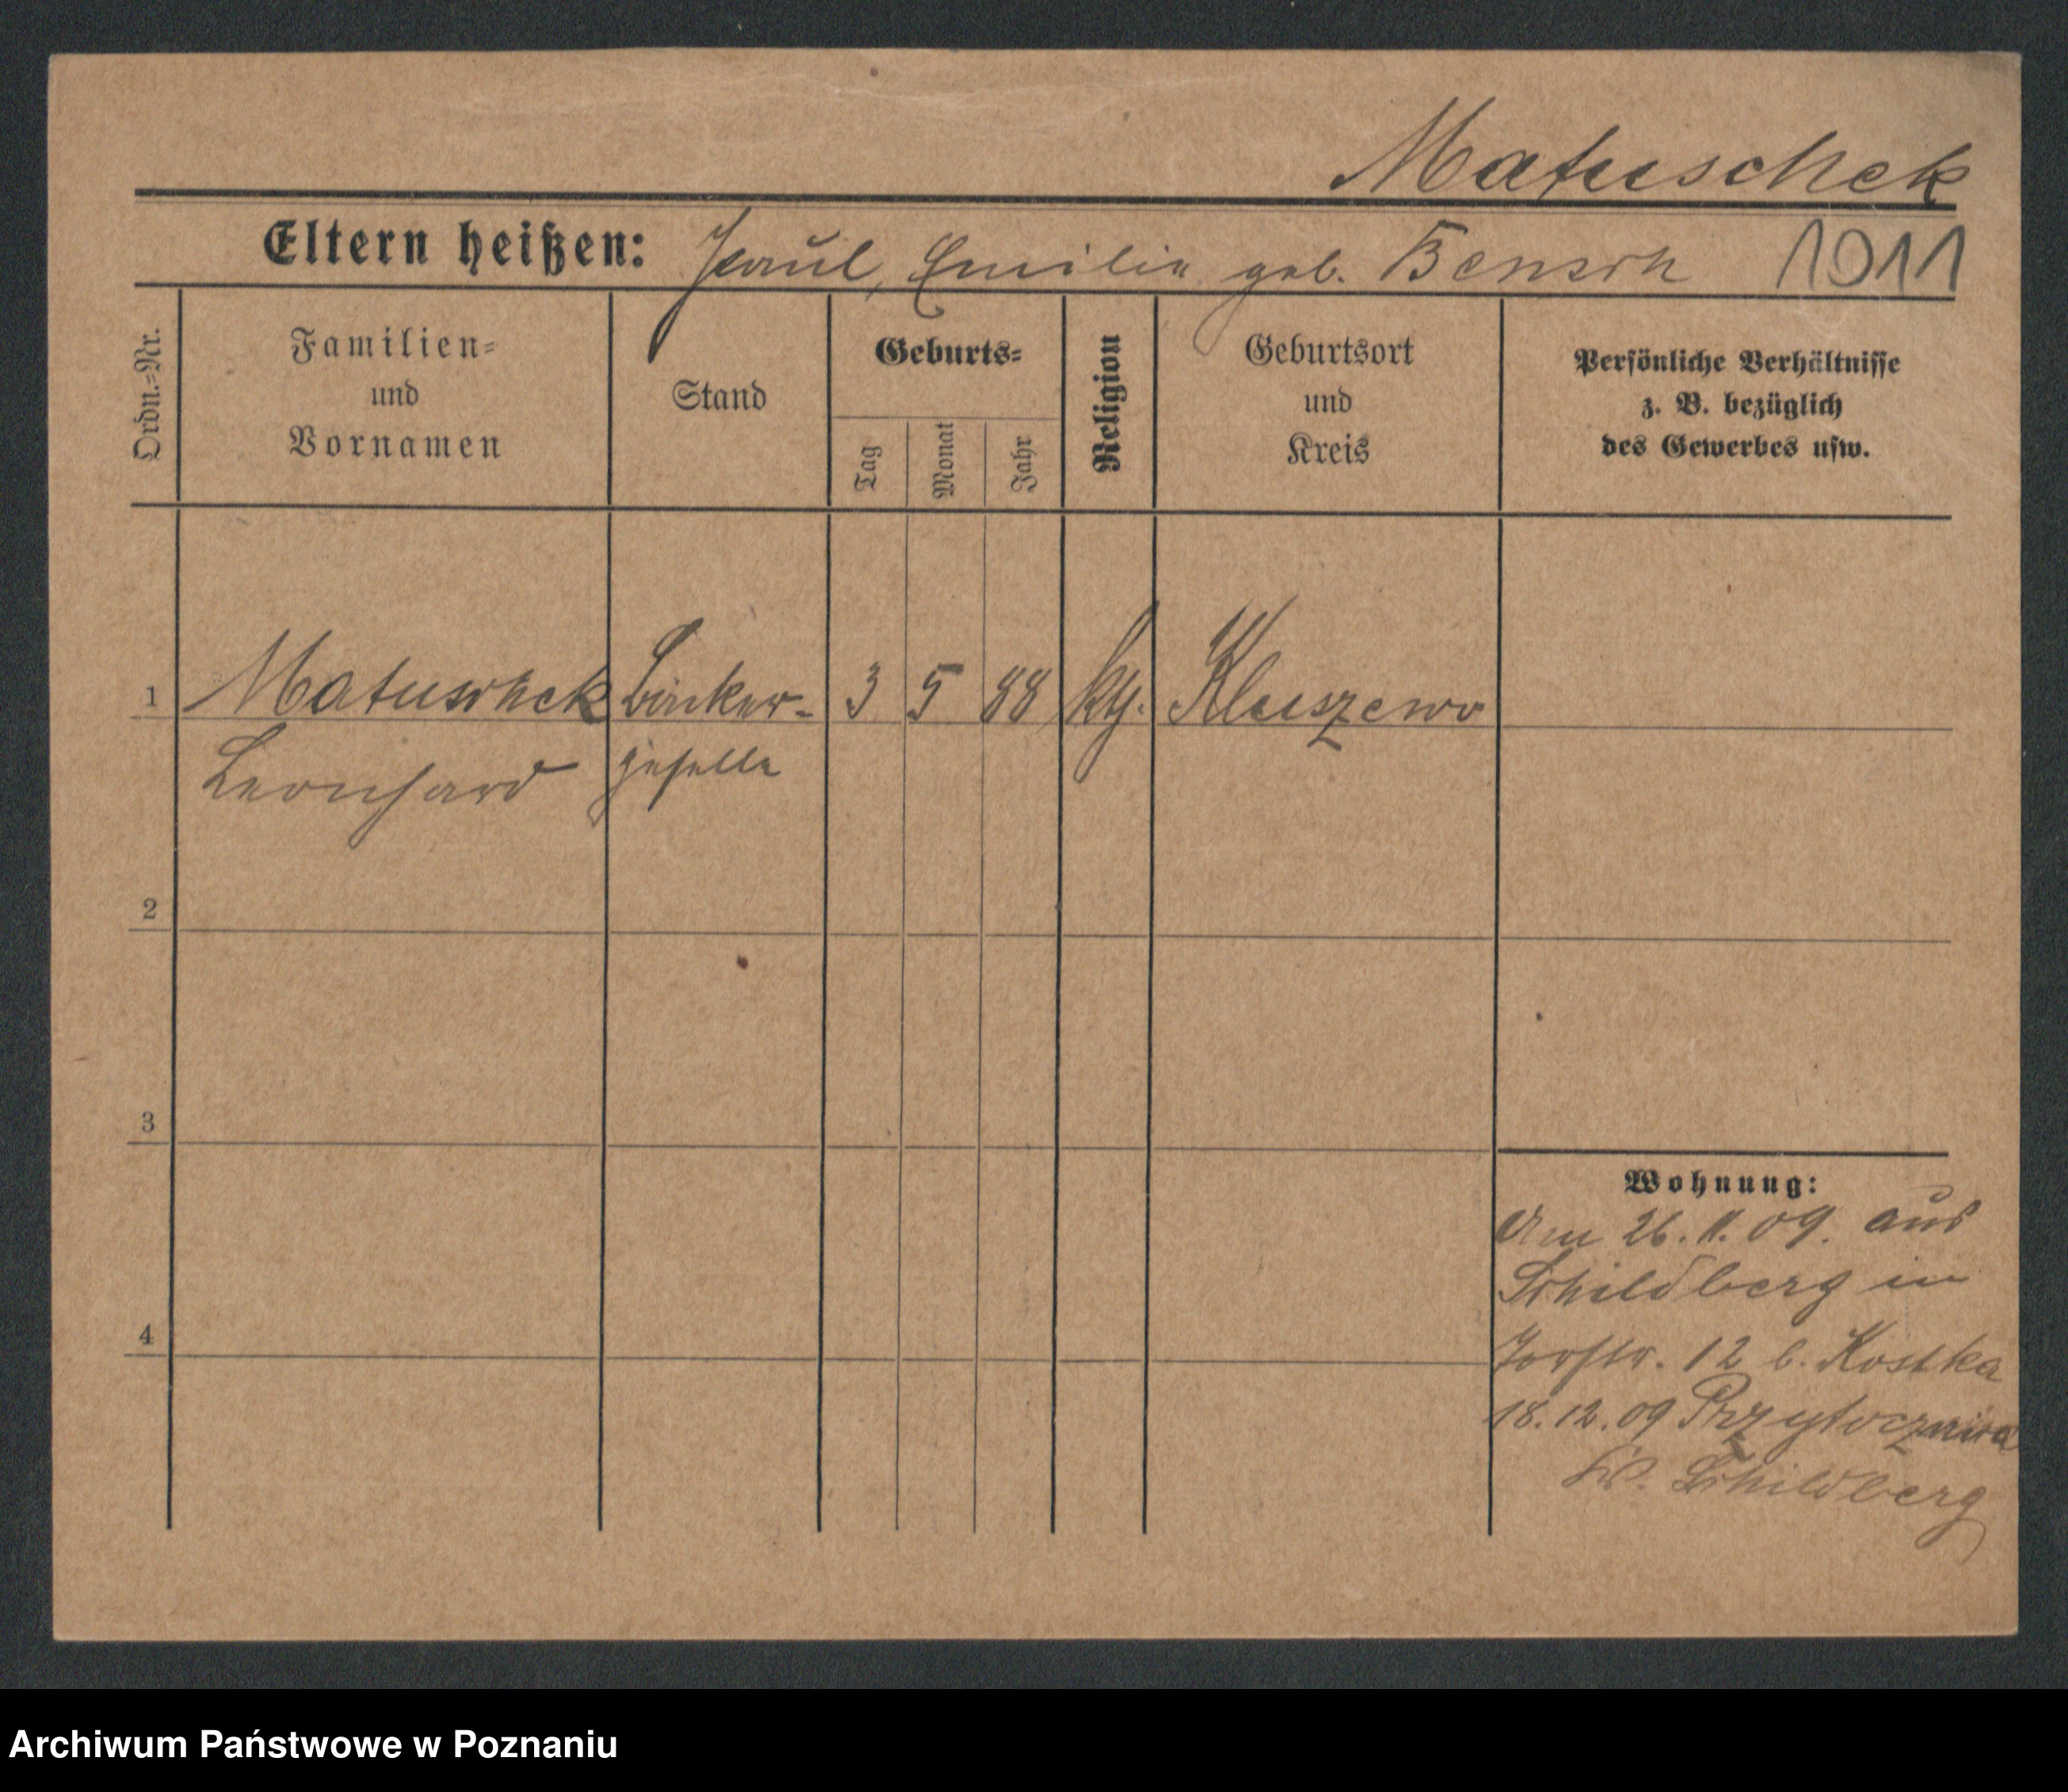 Matuschek
Eltern heißen: Paul, Emilie geb. Bensch 1011
Ordn.-Nr.
Familien-
und
Vornamen
Stand
Geburts-
Tag
Monat
Jahr
Religion
Geburtsort
und
Kreis
Persönliche Verhältnisse
z. B. bezüglich
des Gewerbes usw.
1 Matuschek Bäcker- 3 5 88 kth. Kluszewo
Leonhard geselle
2
3
4
Wohnung:
Am 26. 11. 09. aus
Schildberg in
12 b. Kostka
18. 12. 09 Przytocznica
Kr. Schildberg
Archiwum Państwowe w Poznaniu